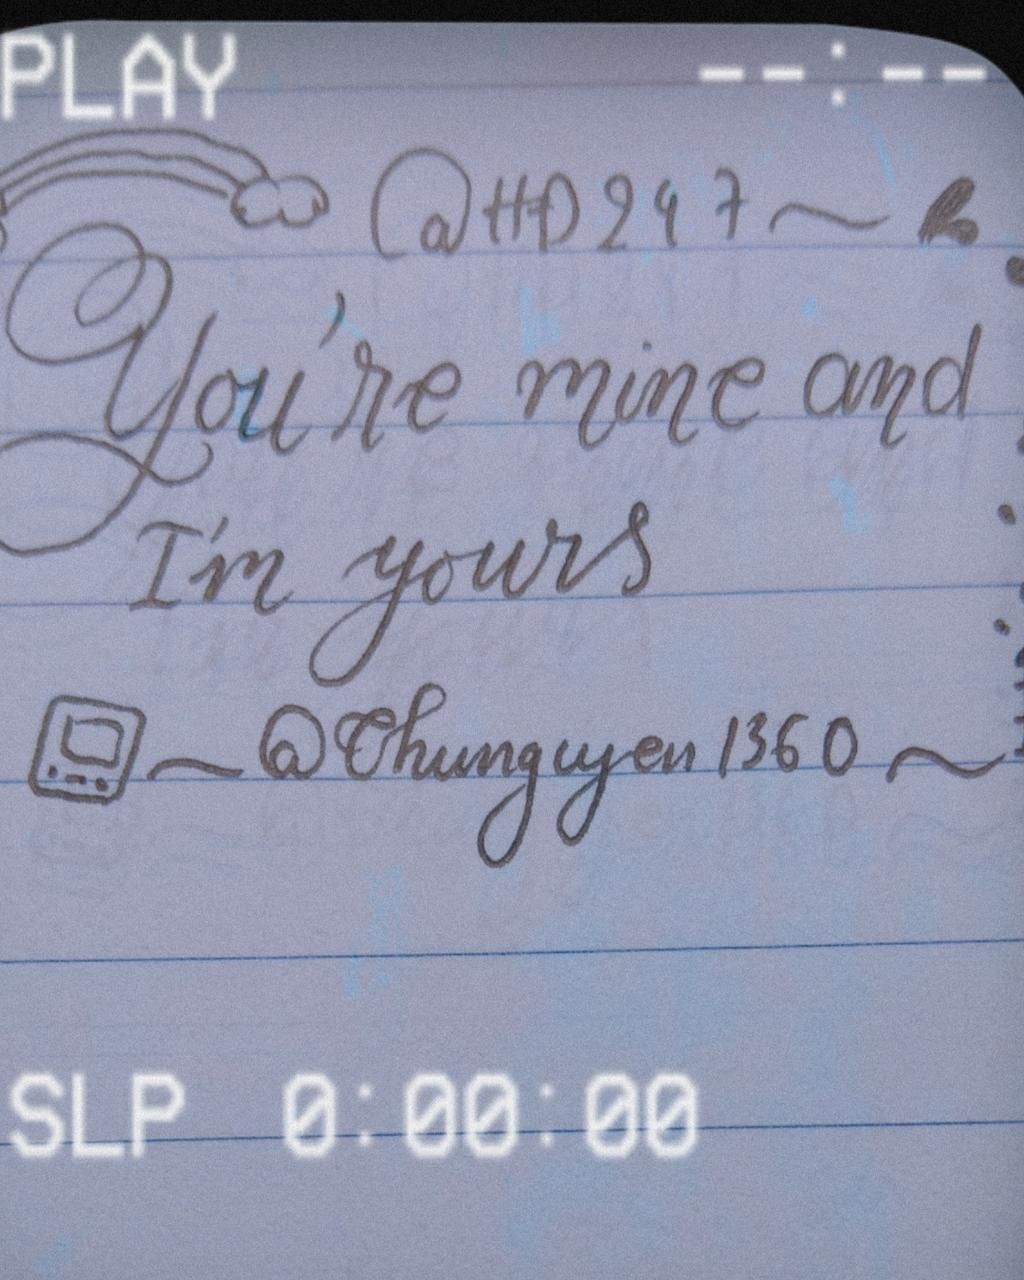 PLAY --:--
@HD247~
You're mine and
I'm yours
~@Thunguyen1360~
SLP 0:00:00